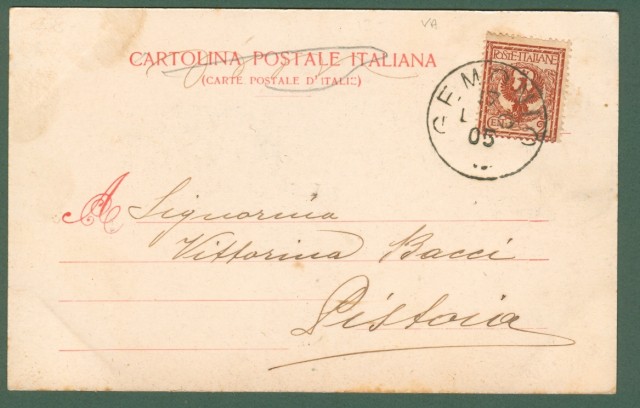 VA
CARTOLINA POSTALE ITALIANA
(CARTE POSTALE D'ITALIE)
POSTE ITALIANE
05
A Signorina
Vittorina Bacci
Pistoia